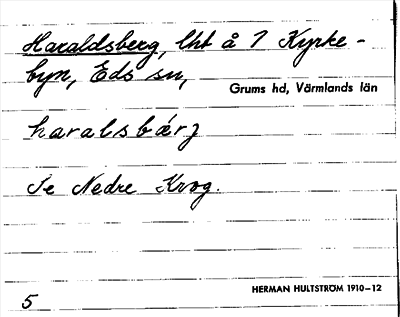 Haraldsberg, lht å 7 Kyrke-
byn, Eds sn,
Grums hd, Värmlands län
haralsbærj
Se Nedre Krog.
HERMAN HULTSTRÖM 1910–12
5